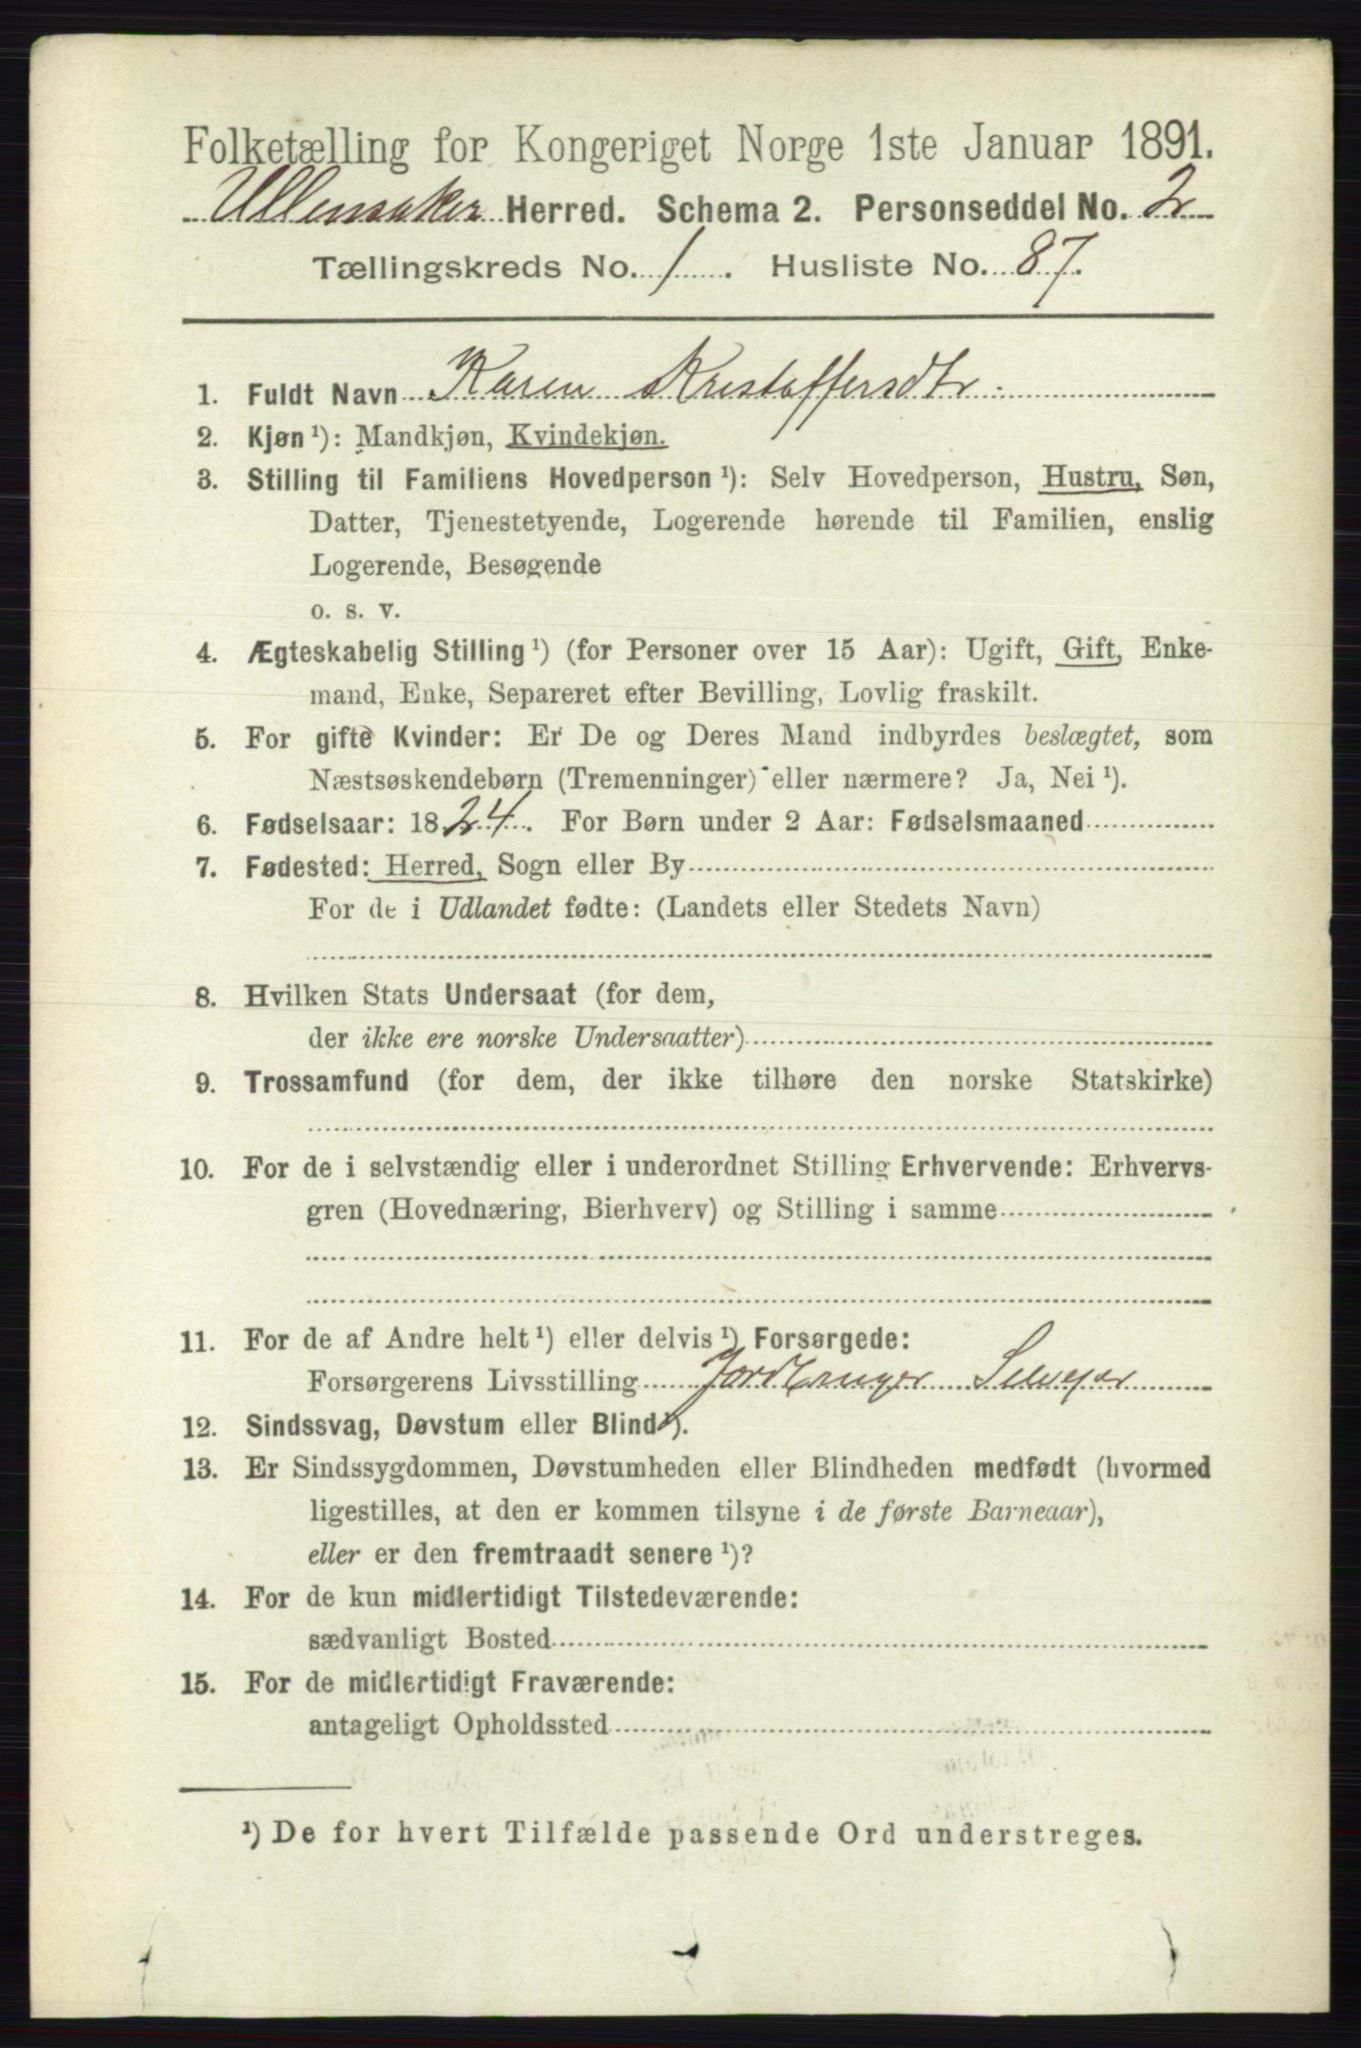 Folketælling for Kongeriget Norge 1ste Januar 1891.
Ullensaker Herred. Schema 2. Personseddel No. 2
Tællingskreds No. 1. Husliste No. 87.
1. Fuldt Navn Karen Kristoffersdtr.
2. Kjøn ¹): Mandkjøn, Kvindekjøn.
3. Stilling til Familiens Hovedperson ¹): Selv Hovedperson, Hustru, Søn,
Datter, Tjenestetyende, Logerende hørende til Familien, enslig
Logerende, Besøgende
o. s. v.
4. Ægteskabelig Stilling ¹) (for Personer over 15 Aar): Ugift, Gift, Enke-
mand, Enke, Separeret efter Bevilling, Lovlig fraskilt.
5. For gifte Kvinder: Er De og Deres Mand indbyrdes beslægtet, som
Næstsøskendebørn (Tremenninger) eller nærmere? Ja, Nei ¹).
6. Fødselsaar: 1824. For Børn under 2 Aar: Fødselsmaaned
7. Fødested: Herred, Sogn eller By
For de i Udlandet fødte: (Landets eller Stedets Navn)
8. Hvilken Stats Undersaat (for dem,
der ikke ere norske Undersaatter)
9. Trossamfund (for dem, der ikke tilhøre den norske Statskirke)
10. For de i selvstændig eller i underordnet Stilling Erhvervende: Erhvervs-
gren (Hovednæring, Bierhverv) og Stilling i samme
11. For de af Andre helt ¹) eller delvis ¹) Forsørgede:
Forsørgerens Livsstilling Jordbruger Selvejer
12. Sindssvag, Døvstum eller Blind ¹).
13. Er Sindssygdommen, Døvstumheden eller Blindheden medfødt (hvormed
ligestilles, at den er kommen tilsyne i de første Barneaar),
eller er den fremtraadt senere ¹)?
14. For de kun midlertidigt Tilstedeværende:
sædvanligt Bosted
15. For de midlertidigt Fraværende:
antageligt Opholdssted
¹) De for hvert Tilfælde passende Ord understreges.